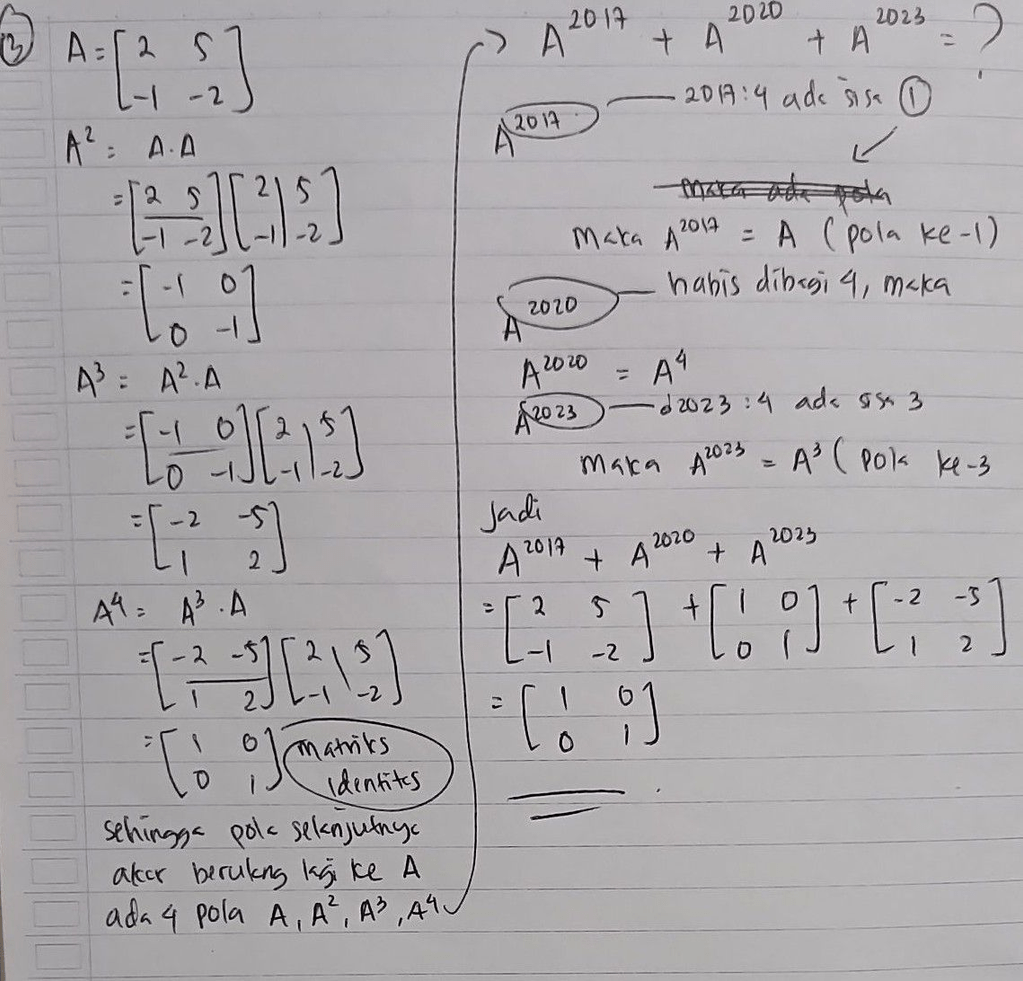 3 A = [2 5
-1 -2]
A² = A.A
= [2 5
-1 -2] [2 5
-1 -2]
= [-1 0
0 -1]
A³ = A².A
= [-1 0
0 -1] [2 5
-1 -2]
= [-2 -5
1 2]
A⁴ = A³.A
= [-2 -5
1 2] [2 5
-1 -2]
= [1 0
0 1] matriks
identitas
sehingga pola selanjutnya
akan berulang lagi ke A
ada 4 pola A, A², A³, A⁴
→ A²⁰¹⁷ + A²⁰²⁰ + A²⁰²³ = ?
A²⁰¹⁷ — 2017:4 ada sisa 1
maka ada pola
maka A²⁰¹⁷ = A (pola ke-1)
A²⁰²⁰ — habis dibagi 4, maka
A²⁰²⁰ = A⁴
A²⁰²³ — 2023:4 ada sisa 3
maka A²⁰²³ = A³ (pola ke-3
Jadi
A²⁰¹⁷ + A²⁰²⁰ + A²⁰²³
= [2 5
-1 -2] + [1 0
0 1] + [-2 -5
1 2]
= [1 0
0 1]